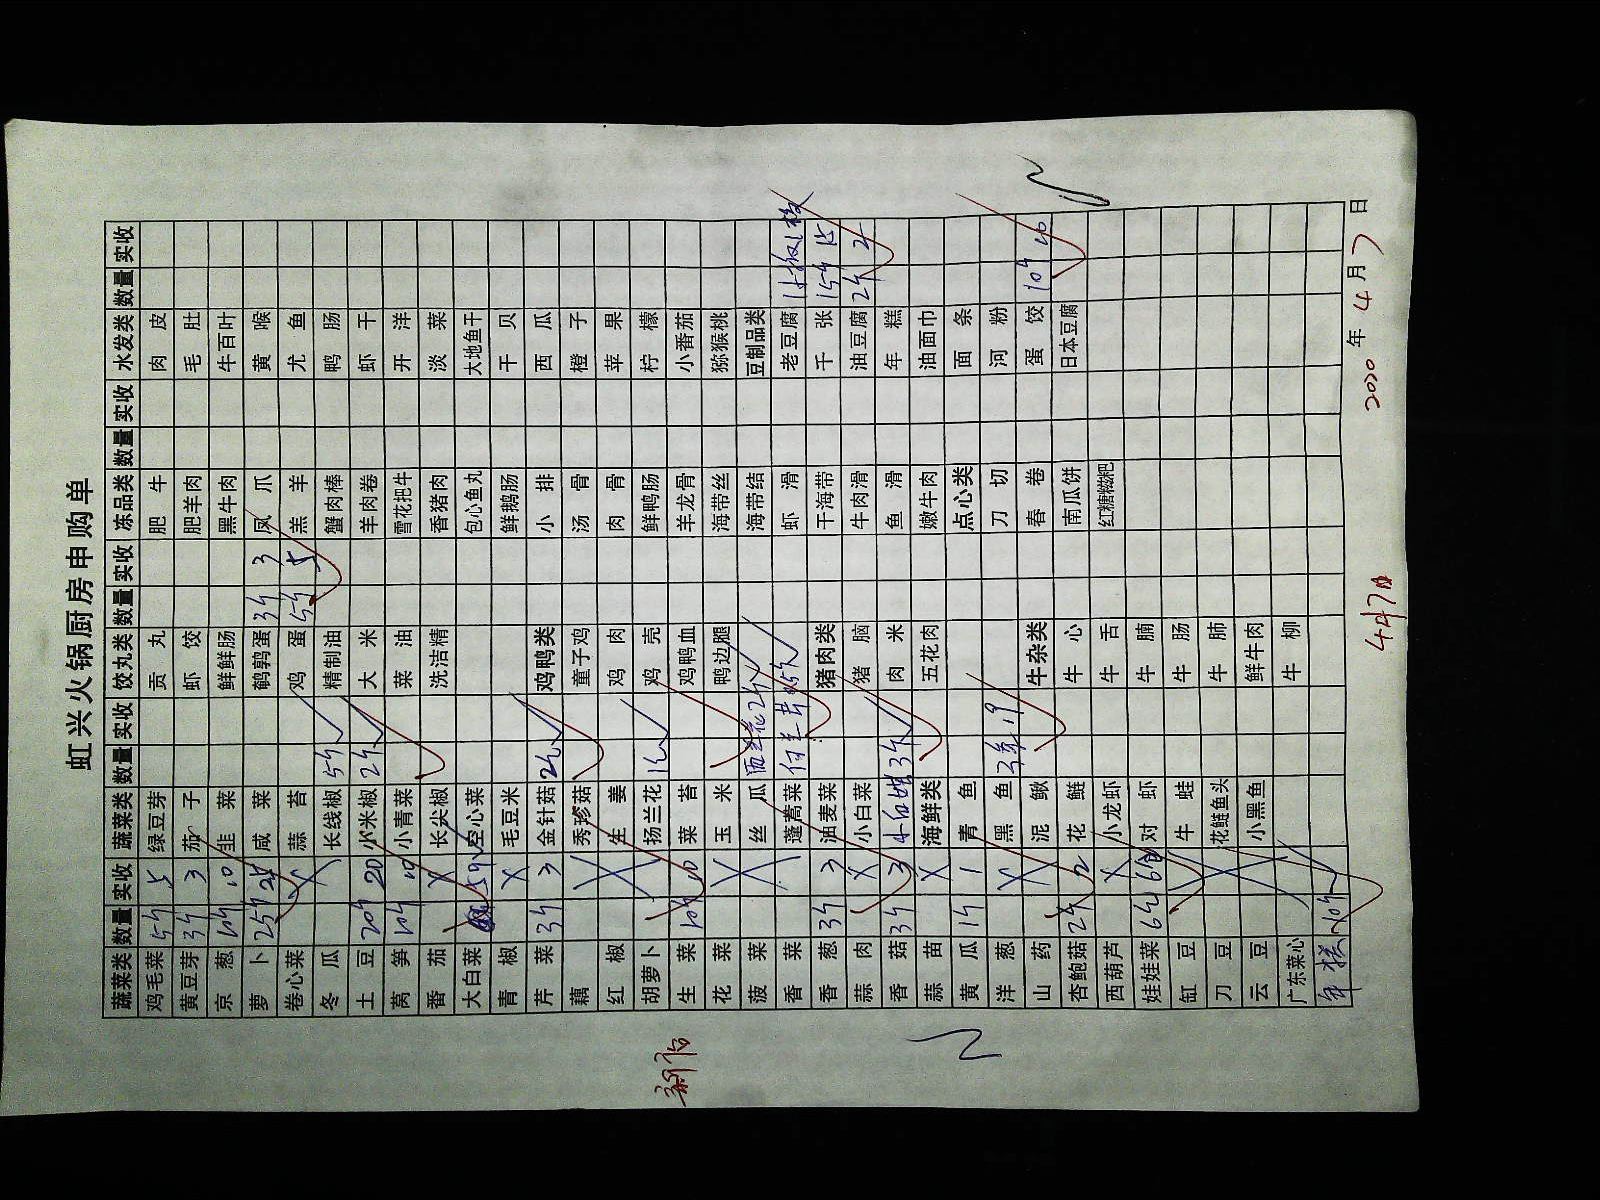 虹兴火锅厨房申购单
蔬菜类 数量 实收 蔬菜类 数量 实收 饺丸类 数量 实收 冻品类 数量 实收 水发类 数量 实收
鸡毛菜 5斤 5 绿豆芽 贡丸 肥牛 肉皮
黄豆芽 3斤 3 茄子 虾饺 肥羊肉 毛肚
京葱 10斤 10 韭菜 鲜鲜肠 黑牛肉 牛百叶
萝卜 25斤 25 咸菜 鹌鹑蛋 3斤 3 凤爪 黄喉
卷心菜 蒜苔 鸡蛋 5斤 5 羔羊 尤鱼
冬瓜 长线椒 5斤 精制油 蟹肉棒 鸭肠
土豆 20斤 20 小米椒 2斤 大米 羊肉卷 虾干
莴笋 10斤 10 小青菜 菜油 雪花把牛 开洋
番茄 长尖椒 洗洁精 香猪肉 淡菜
大白菜 空心菜 包心鱼丸 大地鱼干
青椒 毛豆米 鲜鹅肠 干贝
芹菜 3斤 3 金针菇 鸡鸭类 小排 西瓜
藕 秀珍菇 童子鸡 汤骨 橙子
红椒 生姜 鸡肉 肉骨 苹果
胡萝卜 扬兰花 鸡壳 鲜鸭肠 柠檬
生菜 10斤 10 菜苔 鸡鸭血 羊龙骨 小番茄
花菜 玉米 鸭边腿 海带丝 猕猴桃
菠菜 丝瓜 西兰花 2斤 海带结 豆制品类
香菜 蓬蒿菜 虾滑 老豆腐 1板 1板
香葱 3斤 3 油麦菜 猪肉类 干海带 千张 15斤 15
蒜肉 小白菜 猪脑 牛肉滑 油豆腐 2斤 2
香菇 3斤 3 3斤 肉米 鱼滑 年糕
蒜苗 海鲜类 五花肉 嫩牛肉 油面巾
黄瓜 1斤 1 青鱼 点心类 面条
洋葱 黑鱼 刀切 河粉
山药 泥鳅 牛杂类 春卷 蛋饺 10斤 10
杏鲍菇 2斤 2 花鲢 牛心 南瓜饼 日本豆腐
西葫芦 小龙虾 牛舌 红糖糍粑
娃娃菜 6 6 对虾 牛腩
缸豆 牛蛙 牛肠
刀豆 花鲢鱼头 牛肺
云豆 小黑鱼 鲜牛肉
广东菜心 牛柳
10斤
2020年4月7日